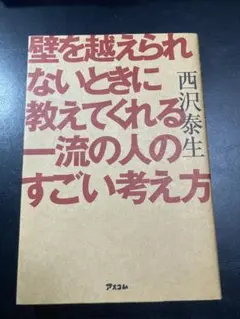 壁を越えられ
ないときに
教えてくれる
一流の人の
すごい考え方
西沢泰生
アスコム